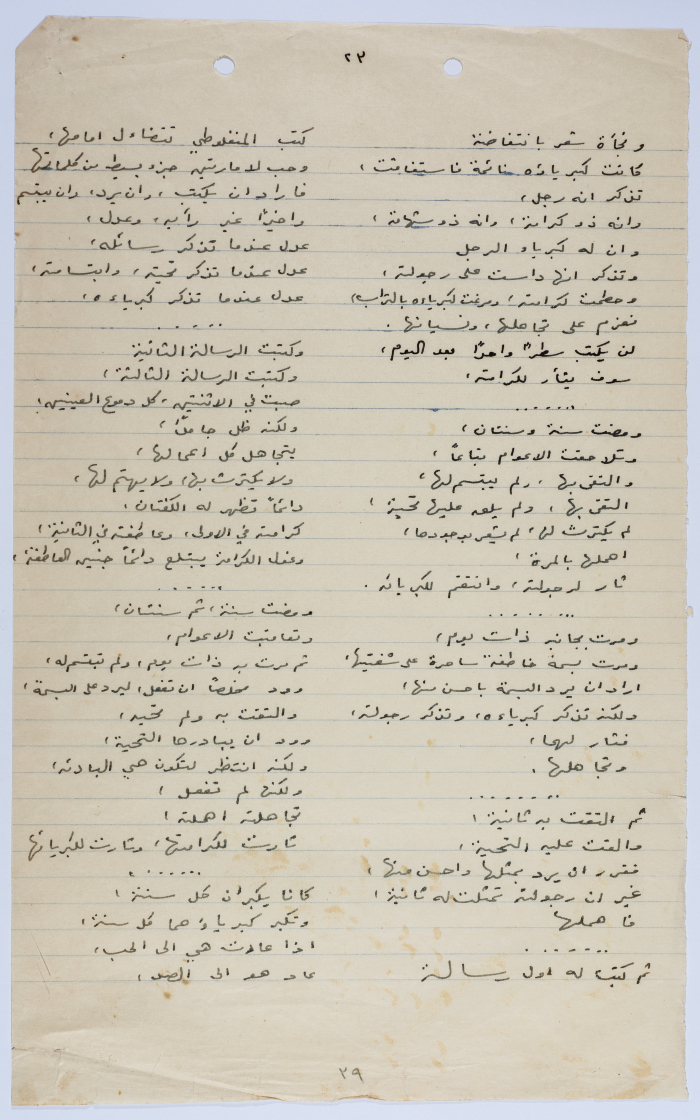 ٢٣
وفجأة شعر بانتفاضة
كانت كبرياؤه نائمة فاستفاقت،
تذكر انه رجل،
وانه ذو كرامة، وانه ذو شهامة،
وان له كبرياء الرجل
وتذكر انها داست على رجولته،
وحطمت كرامته، ومرغت كبرياءه بالتراب،
فعزم على تجاهلها، ونسيانها.
لن يكتب سطرا واحدا بعد اليوم،
سوف يثأر للكرامة،
.......
ومضت سنة وسنتان،
وتلاحقت الاعوام تباعاً،
والتقى بها، ولم يبتسم لها،
التقى بها، ولم يلق عليها تحية،
لم يكترث لها، لم يشعر بوجودها،
اهملها بالمرة،
ثار لرجولته، وانتقم لكبريائه.
........
ومرت بجانبه ذات يوم،
ومرت بسمة خاطفة ساحرة على شفتيها،
اراد ان يرد البسمة باحسن منها،
ولكنه تذكر كبرياءه، وتذكر رجولته،
فثار لهما،
وتجاهلها.
........
ثم التقت به ثانية،
والقت عليه التحية،
فقرر ان يرد بمثلها واحسن منها،
غير ان رجولته تمثلت له ثانية،
فاهملها
.......
ثم كتبت له اول رسالة
كتب المنفلوطي تتضاءل امامها،
وحب لامارتين جزء بسيط من كلماتها
فاراد ان يكتب، وان يرد، وان يبتسم
واخيرًا غير رأيه، وعدل،
عدل عندما تذكر رسائله،
عدل عندما تذكر تحيته، وابتسامته،
عدل عندما تذكر كبرياءه،
......
وكتبت الرسالة الثانية
وكتبت الرسالة الثالثة،
صبت في الاثنتين، كل دموع العينين،
ولكنه ظل جامدًا،
يتجاهل كل اعمالها،
ولا يكترث بها، ولا يهتم لها،
دائماً تظهر له الكفتان،
كرامته في الاولى، وعاطفته في الثانية،
وغول الكرامة يبتلع دائماً جنين العاطفة،
......
ومضت سنة، ثم سنتان،
وتعاقبت الاعوام،
ثم مرت به ذات يوم، ولم تبتسم له،
وود مخلصاً ان تفعل، ليرد على البسمة،
والتقت به ولم تحيه،
وود ان يبادرها التحية،
ولكنه انتظر لتكون هي البادئة،
ولكنها لم تفعل،
تجاهلته اهملته،
ثارت لكرامتها، وثارت لكبريائها
.......
كانا يكبران كل سنة،
وتكبر كبرياؤهما كل سنة،
اذا عادت هي الى الحب،
عاد هو الى الصد،
٣٩